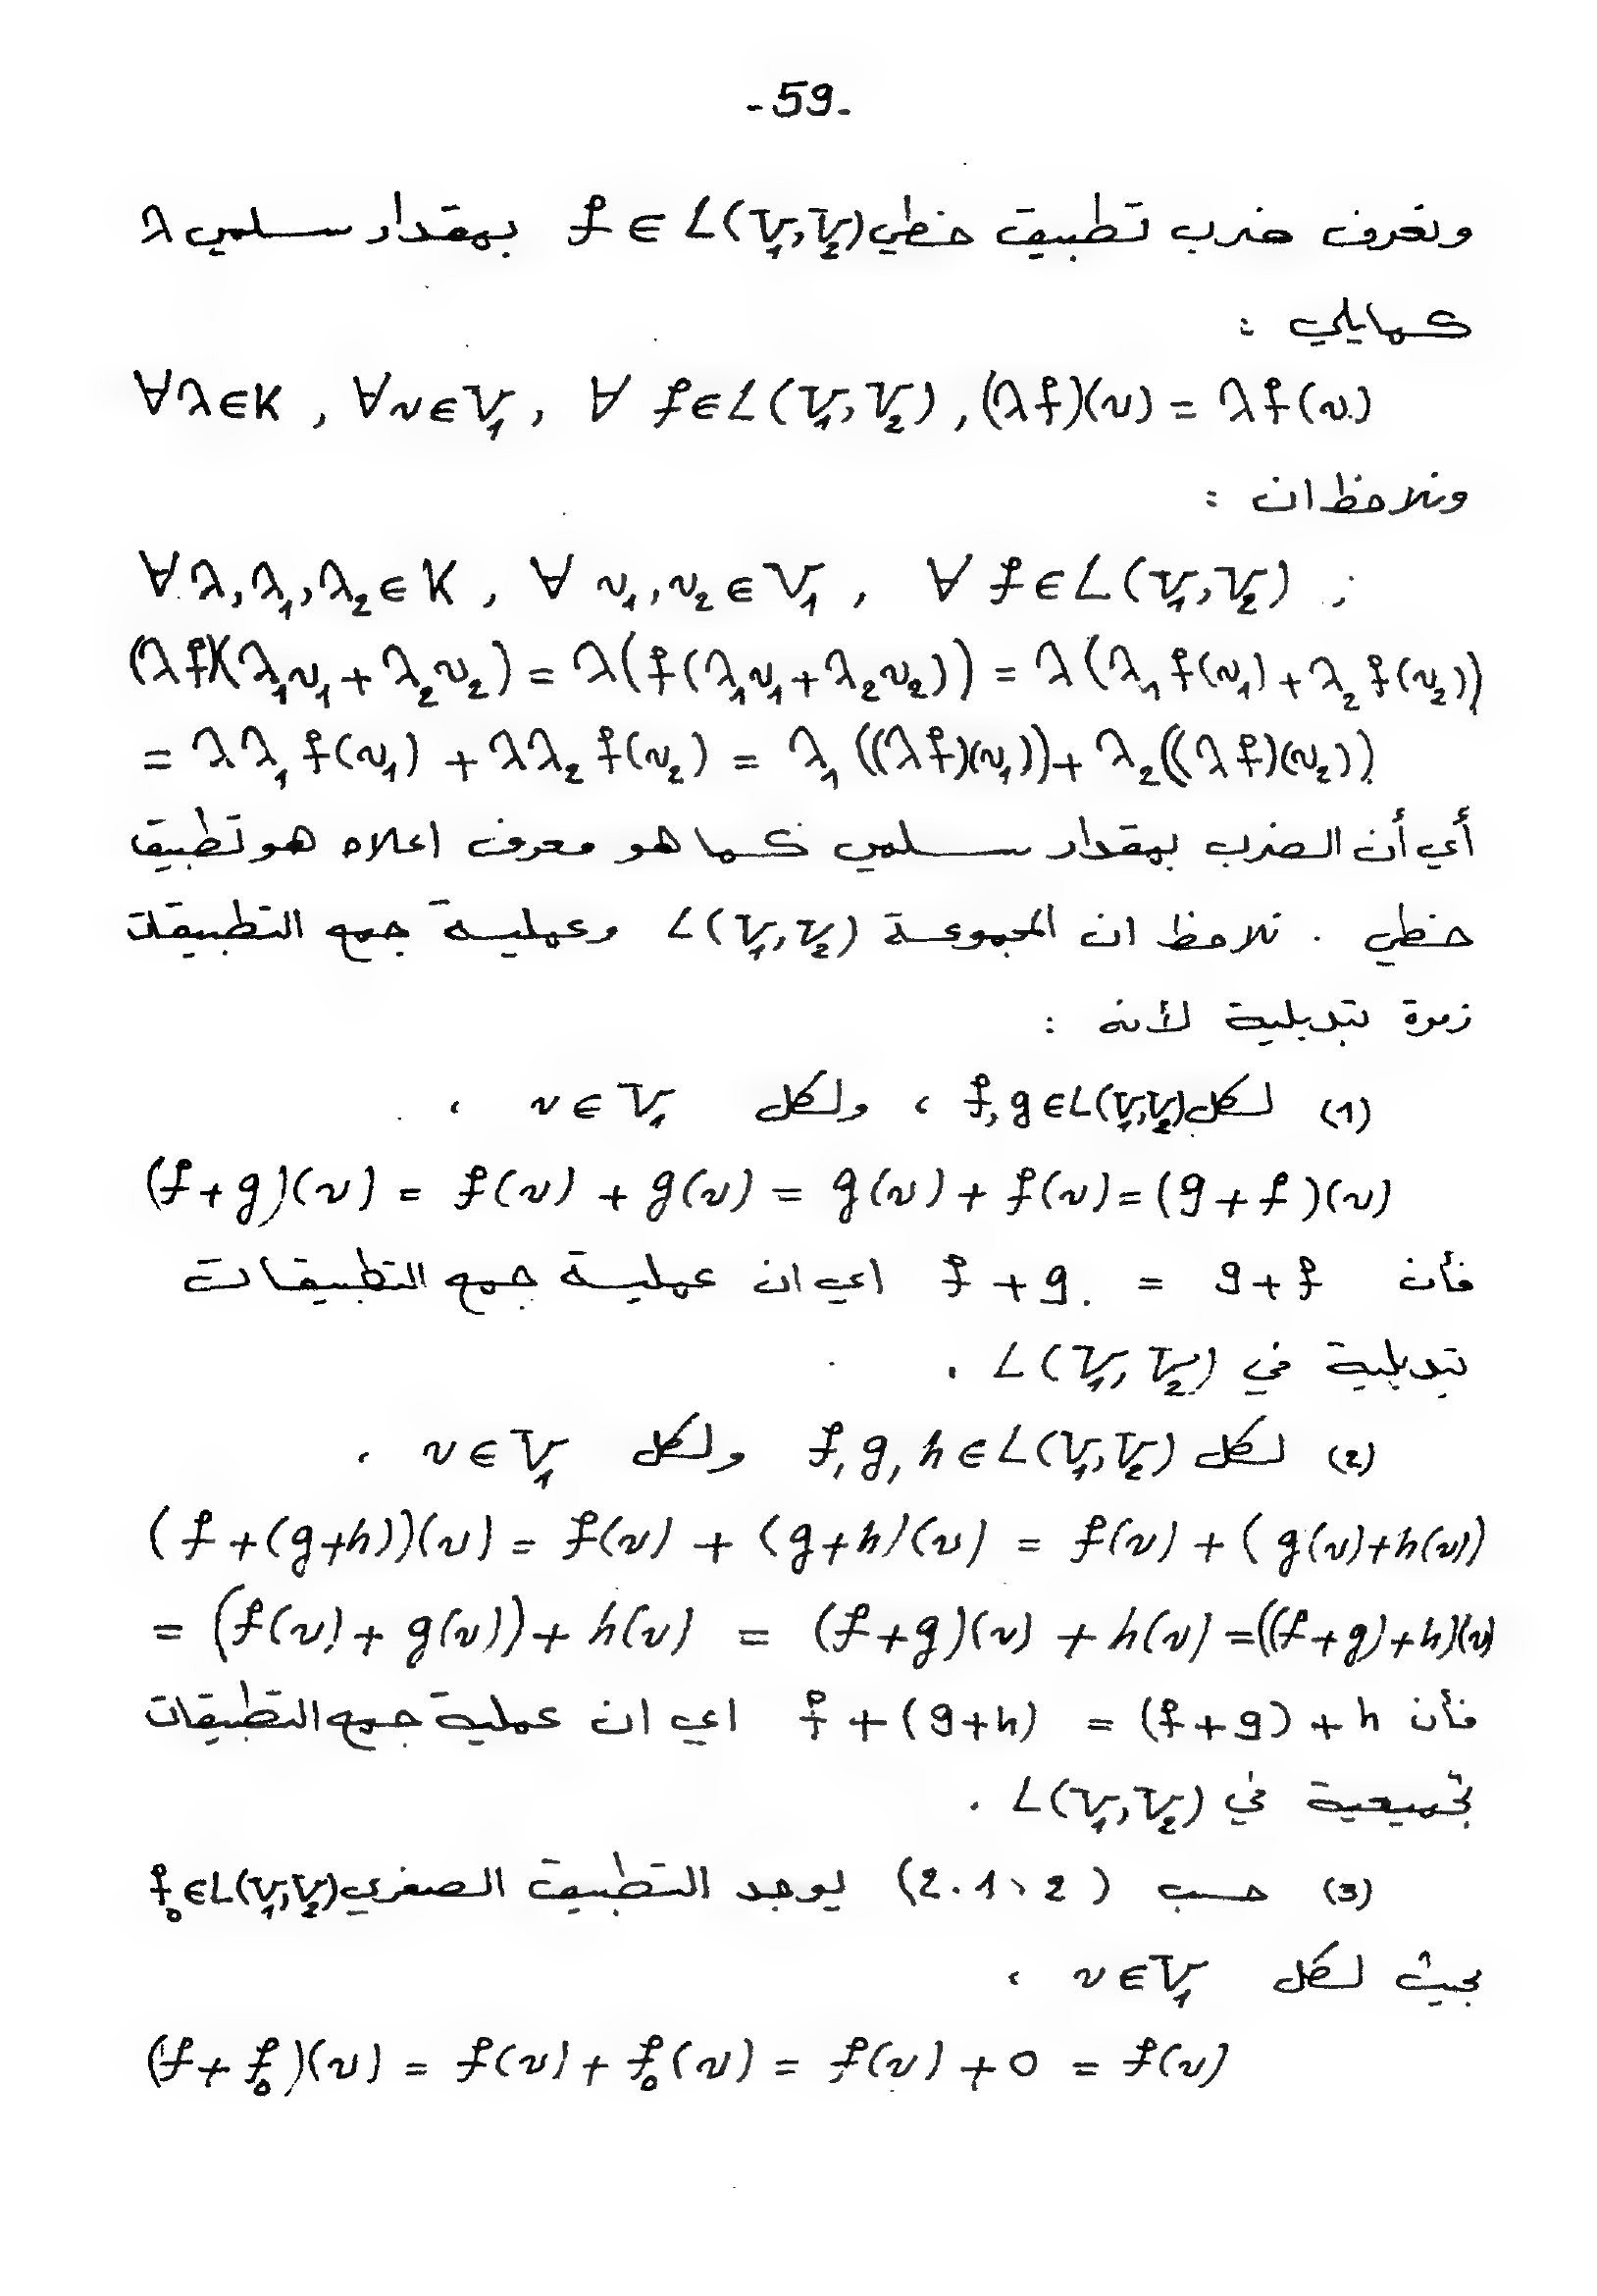 -59-
ونعرف ضرب تطبيق خطي f ∈ L(V₁,V₂) بمقدار سلمي λ
كمايلي :
∀λ∈K , ∀v∈V₁ , ∀ f∈L(V₁,V₂) , (λf)(v) = λf(v)
ونلاحظ ان :
∀λ,λ₁,λ₂∈K , ∀ v₁,v₂∈V₁ , ∀ f∈L(V₁,V₂) ,
(λf)(λ₁v₁+λ₂v₂) = λ(f(λ₁v₁+λ₂v₂)) = λ(λ₁f(v₁)+λ₂f(v₂))
= λλ₁f(v₁) + λλ₂f(v₂) = λ₁((λf)(v₁))+λ₂((λf)(v₂))
أي أن الضرب بمقدار سلمي كما هو معرف اعلاه هو تطبيق
خطي . نلاحظ ان المجموعة L(V₁,V₂) وعملية جمع التطبيقات
زمرة تبديلية لأنه :
(1) لكل f,g∈L(V₁,V₂) ، ولكل v∈V₁ ،
(f+g)(v) = f(v) + g(v) = g(v) + f(v) = (g+f)(v)
فأن f + g = g+f اي ان عملية جمع التطبيقات
تبديلية في L(V₁,V₂) .
(2) لكل f,g,h∈L(V₁,V₂) ولكل v∈V₁ ،
(f+(g+h))(v) = f(v) + (g+h)(v) = f(v) + (g(v)+h(v))
= (f(v)+g(v))+h(v) = (f+g)(v) + h(v) = ((f+g)+h)(v)
فأن f+(g+h) = (f+g)+h اي ان عملية جمع التطبيقات
تجميعية في L(V₁,V₂) .
(3) حسب (2.1،2) يوجد التطبيق الصفري f₀∈L(V₁,V₂)
بحيث لكل v∈V₁ ،
(f+f₀)(v) = f(v) + f₀(v) = f(v) + 0 = f(v)